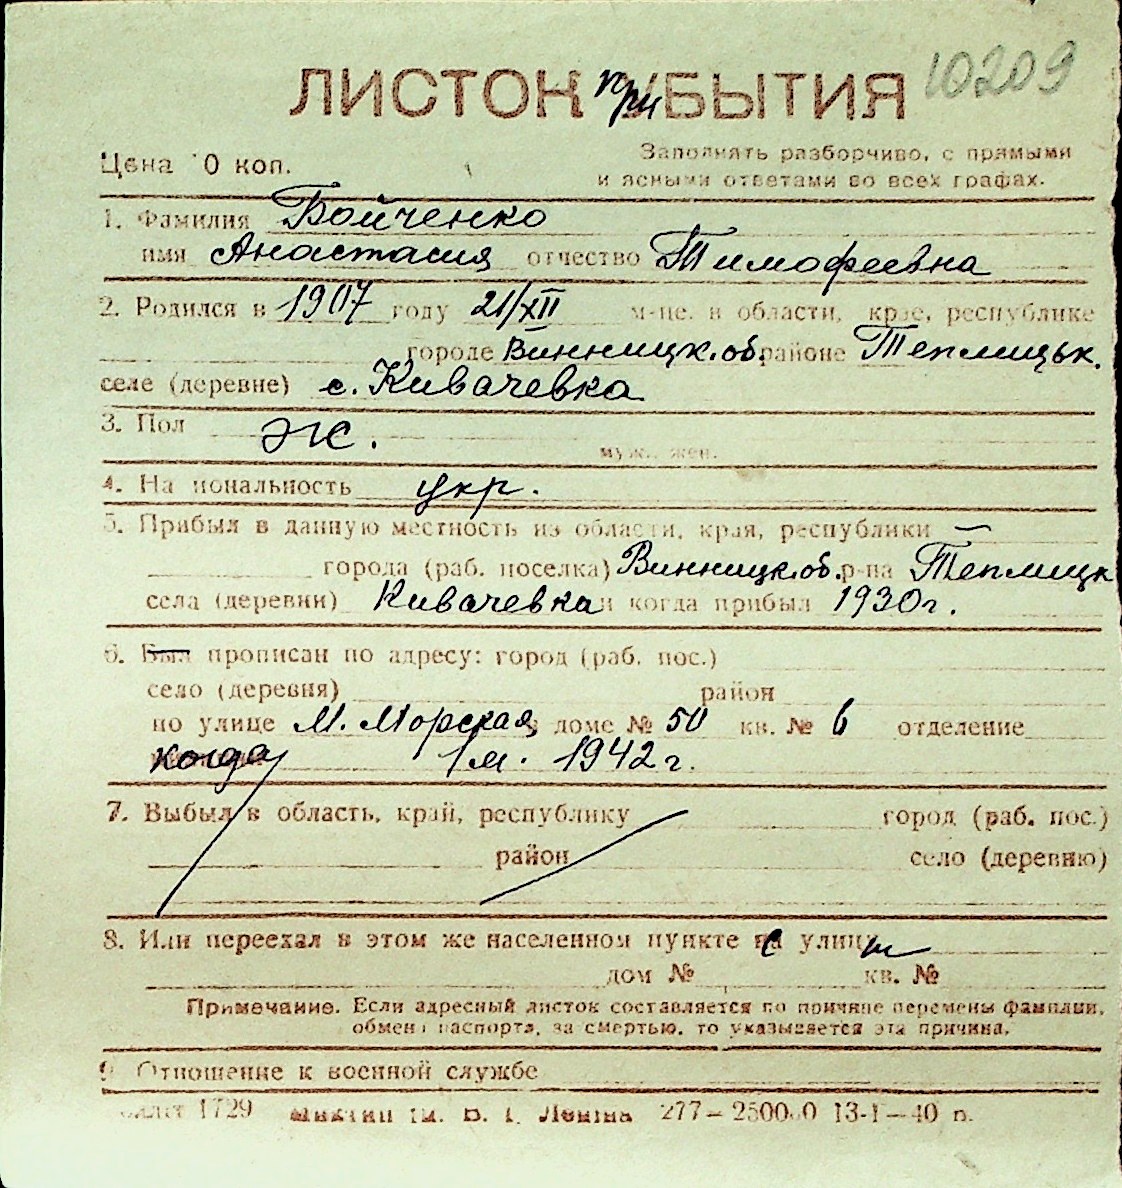 10209
ЛИСТОК при УБЫТИЯ
Цена 10 коп.
Заполнять разборчиво, с прямыми
и ясными ответами во всех графах.
1. Фамилия Бойченко
имя Анастасия отчество Тимофеевна
2. Родился в 1907 году 21/XII м-це. в области, крае, республике
городе Винницк. об. районе Теплицьк.
селе (деревне) с. Кивачевка
3. Пол Ж.
муж., жен.
4. Национальность укр.
5. Прибыл в данную местность из области, края, республики —
города (раб. поселка) Винницк. об. р-на Теплицк
села (деревни) Кивачевка и когда прибыл 1930 г.
6. Был прописан по адресу: город (раб. пос.)
село (деревня) район
по улице М. Морская в доме № 50 кв. № 6 отделение
когда 1942 г.
7. Выбыл в область, край, республику город (раб. пос.)
район село (деревню)
8. Или переехал в этом же населенном пункте с улицы
дом № кв. №
Примечание. Если адресный листок составляется по причине перемены фамилии,
обмена паспорта, за смертью, то указывается эта причина.
9. Отношение к военной службе
1729 им. В. І. Леніна 277— 13-I—40 р.